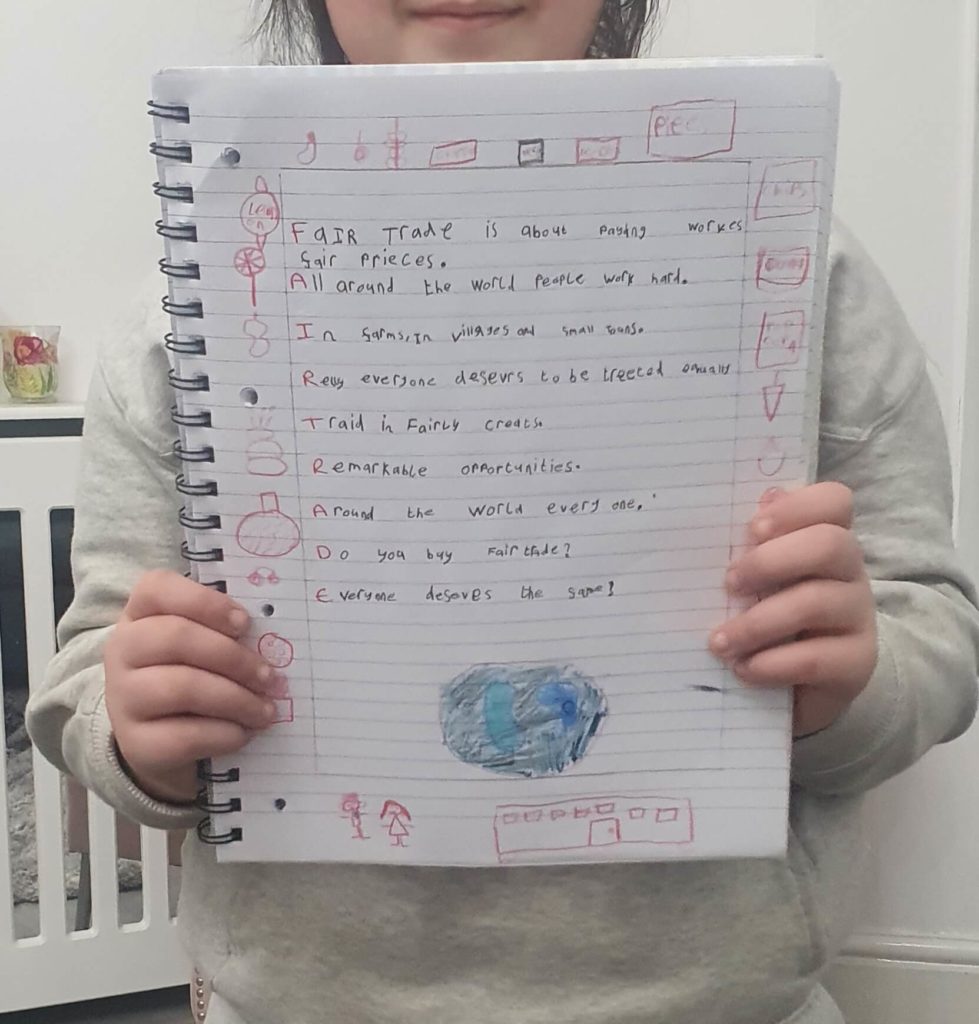 Lemon
FaIR Trade is about Paying workes
fair Prieces.
All around the world People work hard.
In farms, In villages and small towns.
Relly everyone desevrs to be treeted equally
Traid in Fairly creats.
Remarkable opportunities.
Around the world every one.
Do you buy Fairtrade?
Everyone deseves the same!